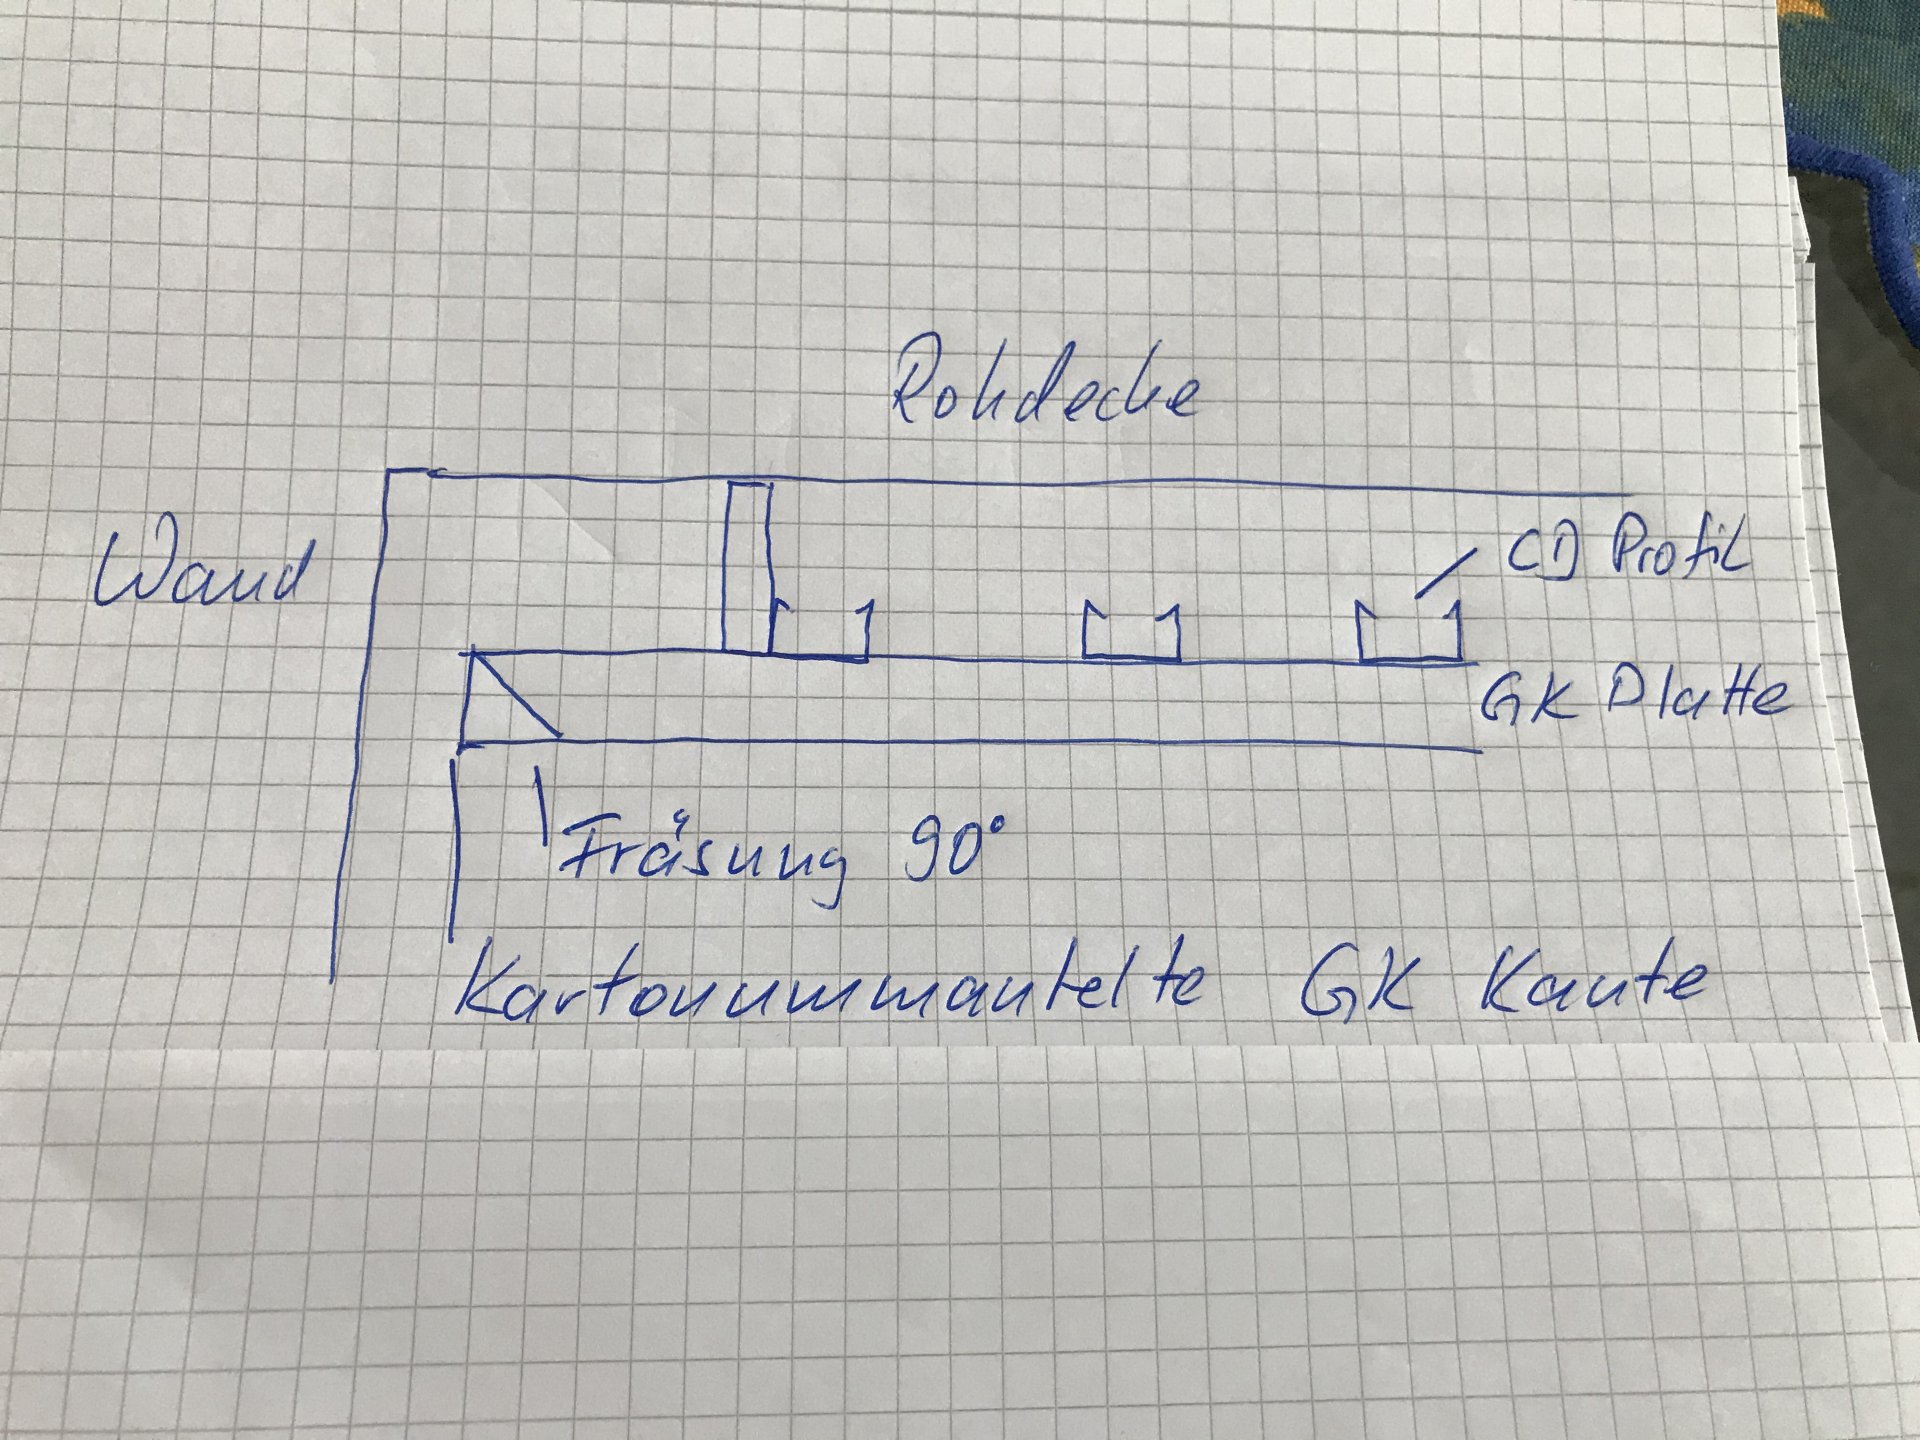 Rohdecke
Wand
CD Profil
GK Platte
Fräsung 90°
Kartonummantelte GK Kante